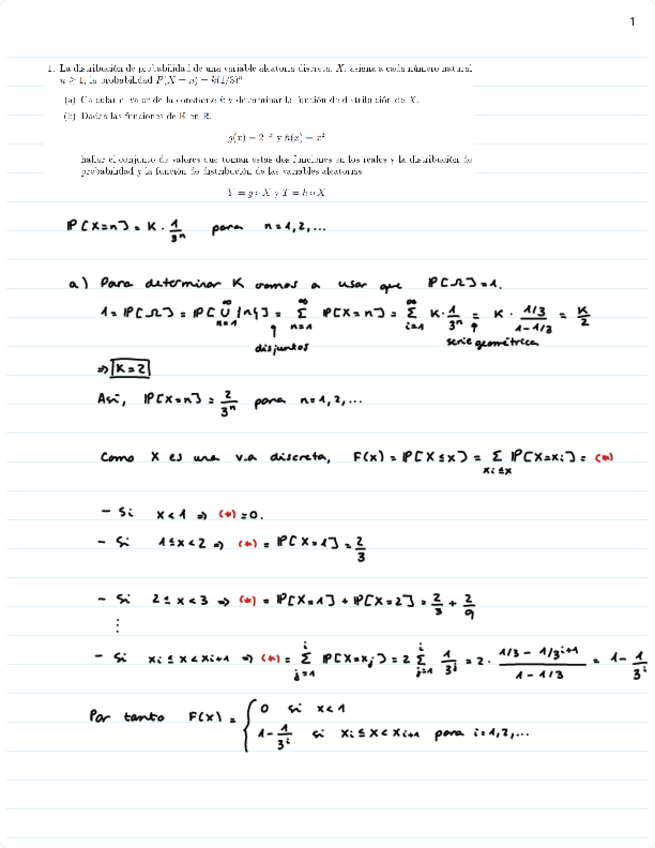 1
1. La distribución de probabilidad de una variable aleatoria discreta, X, asigna a cada número natural
n ≥ 1, la probabilidad P(X = n) = k(1/3)ⁿ
(a) Calcular el valor de la constante k y determinar la función de distribución de X.
(b) Dadas las funciones de ℝ en ℝ,
g(x) = 2⁻ˣ y h(x) = x²
hallar el conjunto de valores que toman estas dos funciones en los reales y la distribución de
probabilidad y la función de distribución de las variables aleatorias
Y = g∘X y T = h∘X
P[X=n] = K · 1/3ⁿ para n=1,2,...
a) Para determinar K vamos a usar que P[Ω]=1.
1 = P[Ω] = P[∪_{n=1}^{∞} {n}] = Σ_{n=1}^{∞} P[X=n] = Σ_{i=1}^{∞} K · 1/3ⁿ = K · (1/3)/(1-1/3) = K/2
disjuntos serie geométrica
⇒ K=2
Así, P[X=n] = 2/3ⁿ para n=1,2,...
Como X es una v.a discreta, F(x) = P[X≤x] = Σ_{xi≤x} P[X=xi] = (*)
- Si x<1 ⇒ (*) = 0.
- Si 1≤x<2 ⇒ (*) = P[X=1] = 2/3
- Si 2≤x<3 ⇒ (*) = P[X=1] + P[X=2] = 2/3 + 2/9
⋮
- Si xi≤x<xi+1 ⇒ (*) = Σ_{j=1}^{i} P[X=xj] = 2 Σ_{j=1}^{i} 1/3ʲ = 2 · (1/3 - 1/3ⁱ⁺¹)/(1-1/3) = 1 - 1/3ⁱ
Por tanto F(x) = { 0 si x<1
1 - 1/3ⁱ si xi≤x<xi+1 para i=1,2,...